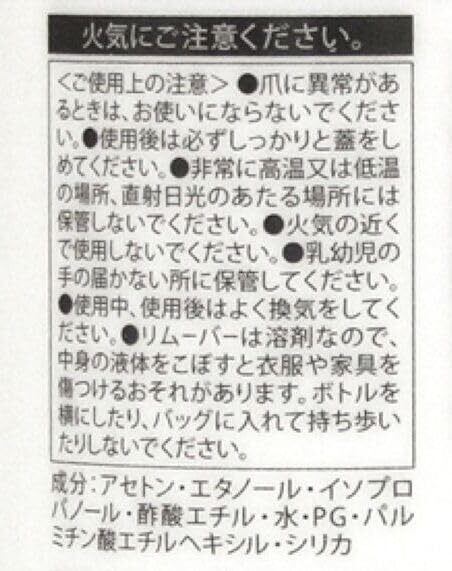 火気にご注意ください。
＜ご使用上の注意＞●爪に異常があ
るときは、お使いにならないでくださ
い。●使用後は必ずしっかりと蓋をし
めてください。●非常に高温又は低温
の場所、直射日光のあたる場所には
保管しないでください。●火気の近く
で使用しないでください。●乳幼児の
手の届かない所に保管してください。
●使用中、使用後はよく換気をしてく
ださい。●リムーバーは溶剤なので、
中身の液体をこぼすと衣服や家具を
傷つけるおそれがあります。ボトルを
横にしたり、バッグに入れて持ち歩い
たりしないでください。
成分：アセトン・エタノール・イソプロ
パノール・酢酸エチル・水・PG・パル
ミチン酸エチルヘキシル・シリカ